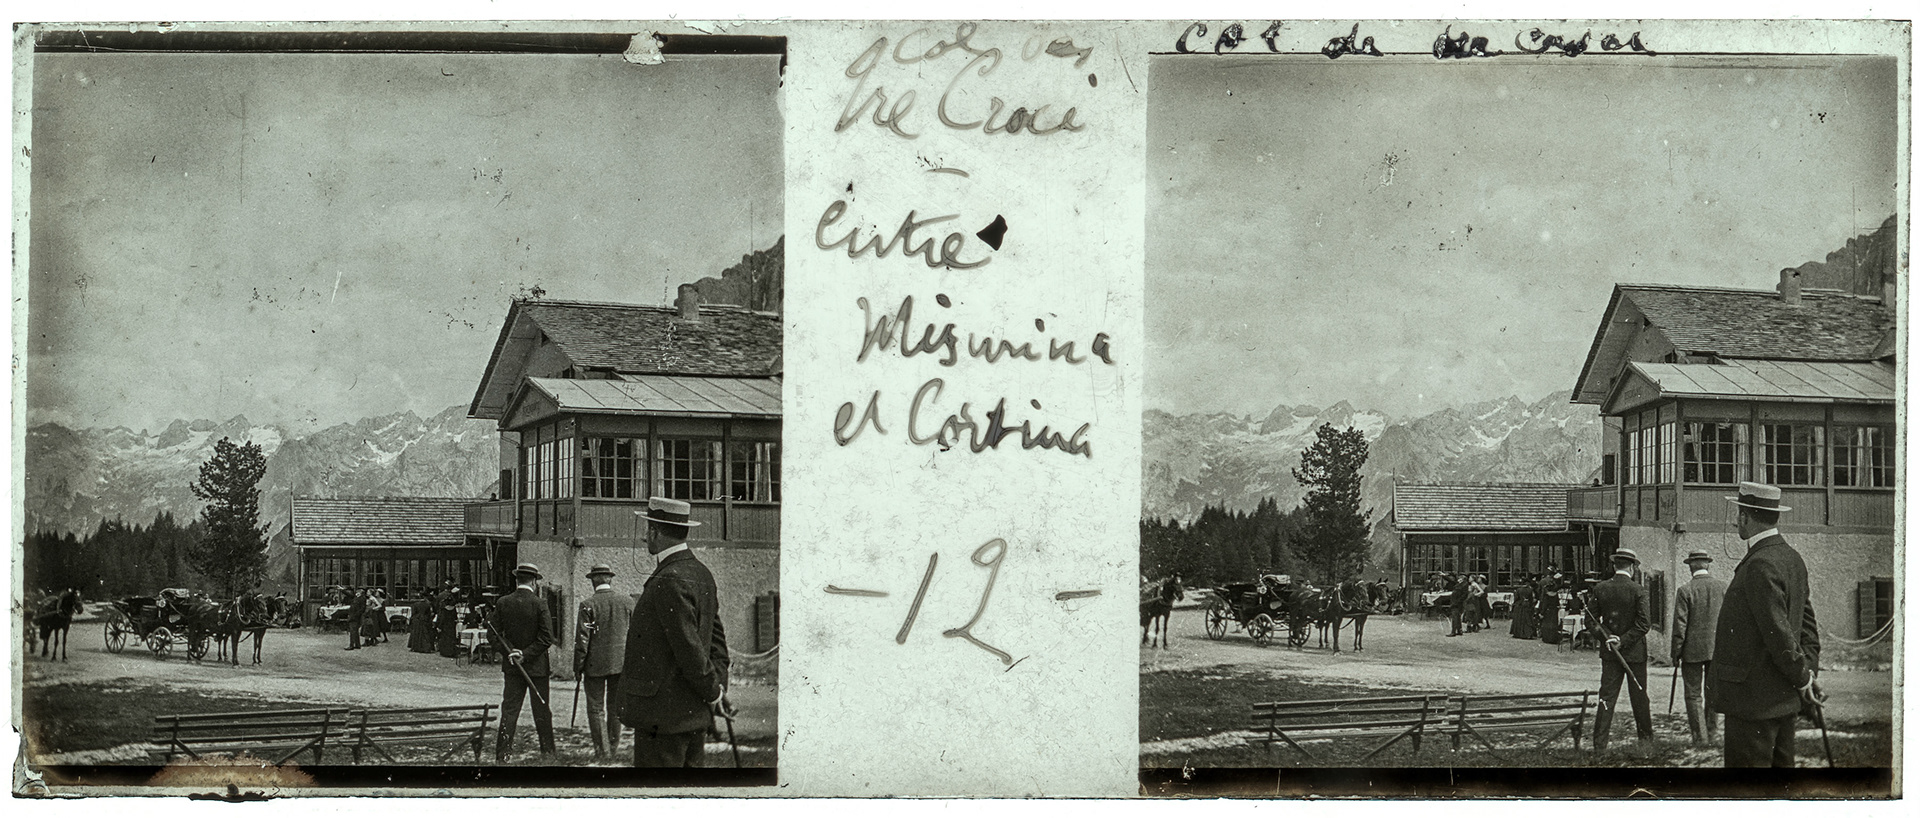 Col
Tre Croci
-
entre
Misurina
et Cortina
- 12 -
Col de